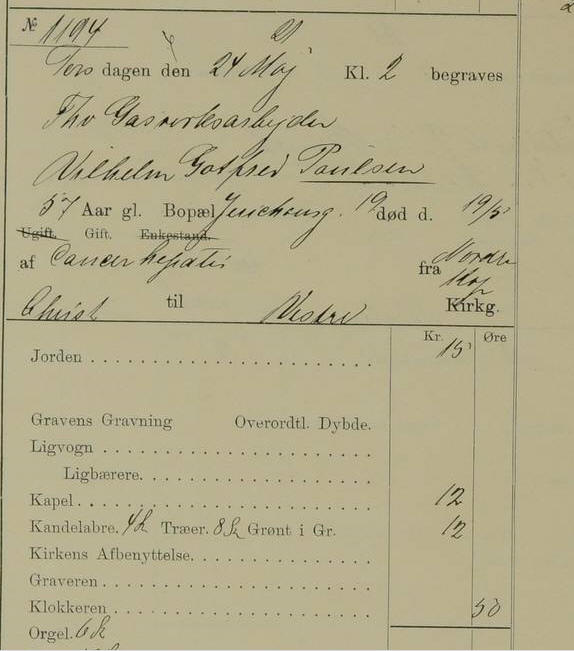 № 1194
Torsdagen den 24 Maj Kl. 2 begraves
Fhv Gasværksarbejder
Vilhelm Gotfred Paulsen
57 Aar gl. Bopæl Jerichausg. 19 død d. 19/5
Ugift. Gift. Enkestand.
af Cancer hepatis fra Nordre Hosp
Christ til Vestre Kirkg.
Kr. Øre
Jorden 15
Gravens Gravning Overordtl. Dybde.
Ligvogn
Ligbærere.
Kapel 12
Kandelabre. 4 St Træer. 8 St Grønt i Gr. 12
Kirkens Afbenyttelse.
Graveren
Klokkeren 50
Orgel. 6